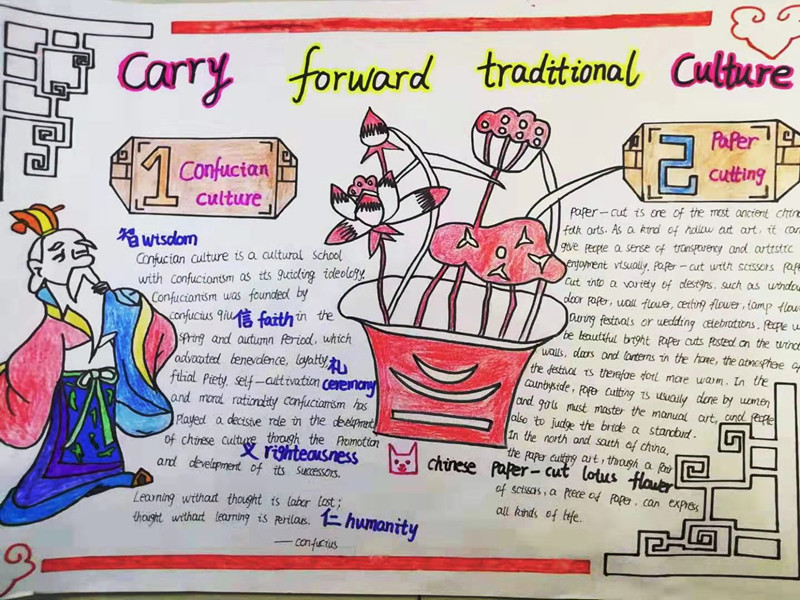 Carry forward traditional Culture
1 Confucian
culture
智 wisdom
Confucian culture is a cultural school
with confucianism as its guiding ideology.
Confucianism was founded by
confucius qiu 信 faith in the
spring and autumn Period, which
advocated benevolence, loyalty, 礼
filial Piety, self-cultivation ceremony
and moral rationality confucianism has
Played a decisive role in the
of chinese culture through the Promotion
义 righteousness
and development of its successors.
Learning without thought is labor lost;
thought without learning is perilous. 仁 humanity
—confucius
2 Paper
cutting
Paper-cut is one of the most ancient
folk arts. As a kind of hollow out art, it can
give people a sense of transparency and artistic
enjoyment visually. Paper-cut with scissors
cut into a variety of designs, such as
door paper, wall flower, ceiling flower, lamp
During festivals or wedding celebrations,
be beautiful bright Paper cuts Posted on the
walls, doors and lanterns in the home, the atmosphere
the festival is therefore more warm. In the
countryside, paper cutting is usually done by women
and girls must master the manual art, and people
also to judge the bride a standard.
In the north and south of china,
the paper cutting art, through a pair
chinese paper-cut lotus flower
of scissors, a piece of paper, can express
all kinds of life.